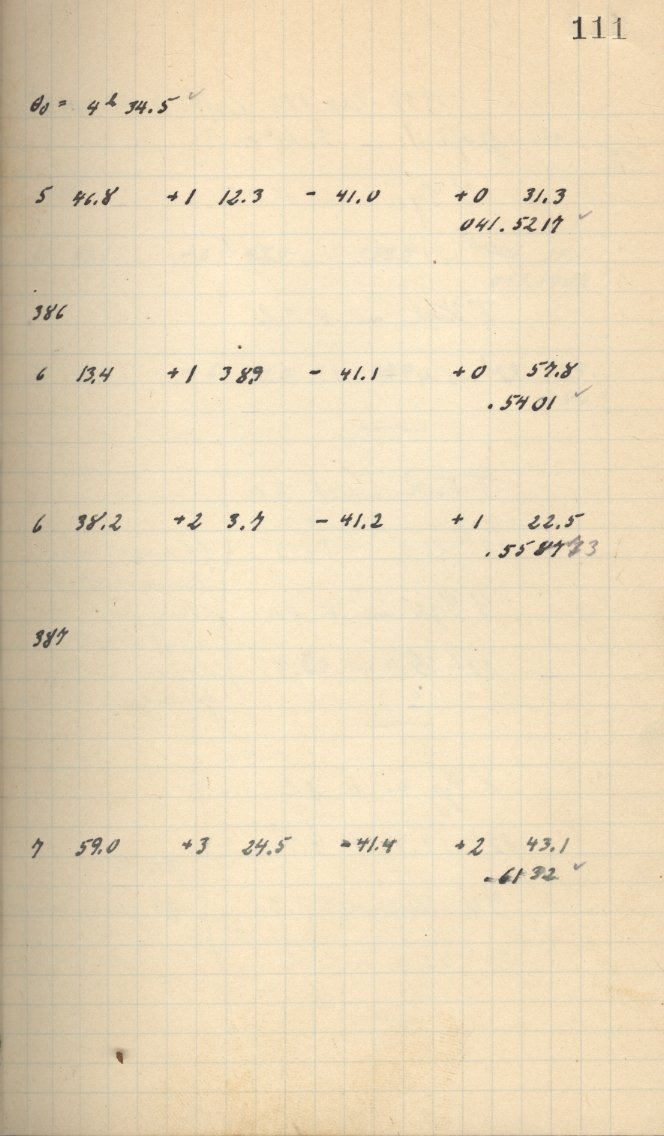 111
θ₀ = 4ʰ 34.5 ✓
5 46.8 +1 12.3 - 41.0 +0 31.3
041.5217 ✓
386
6 13.4 +1 38.9 - 41.1 +0 57.8
.5401 ✓
6 38.2 +2 3.7 - 41.2 +1 22.5
.5587
387
7 59.0 +3 24.5 - 41.4 +2 43.1
.6132 ✓